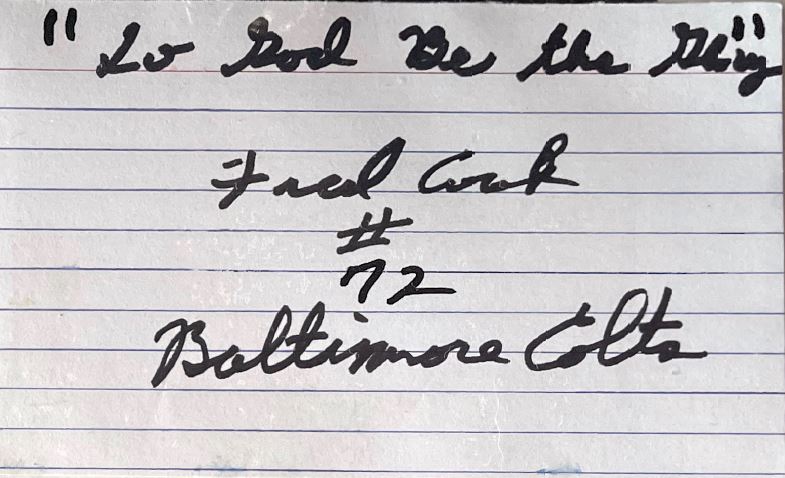 "To God Be the Glory"
Fred Cook
#
72
Baltimore Colts